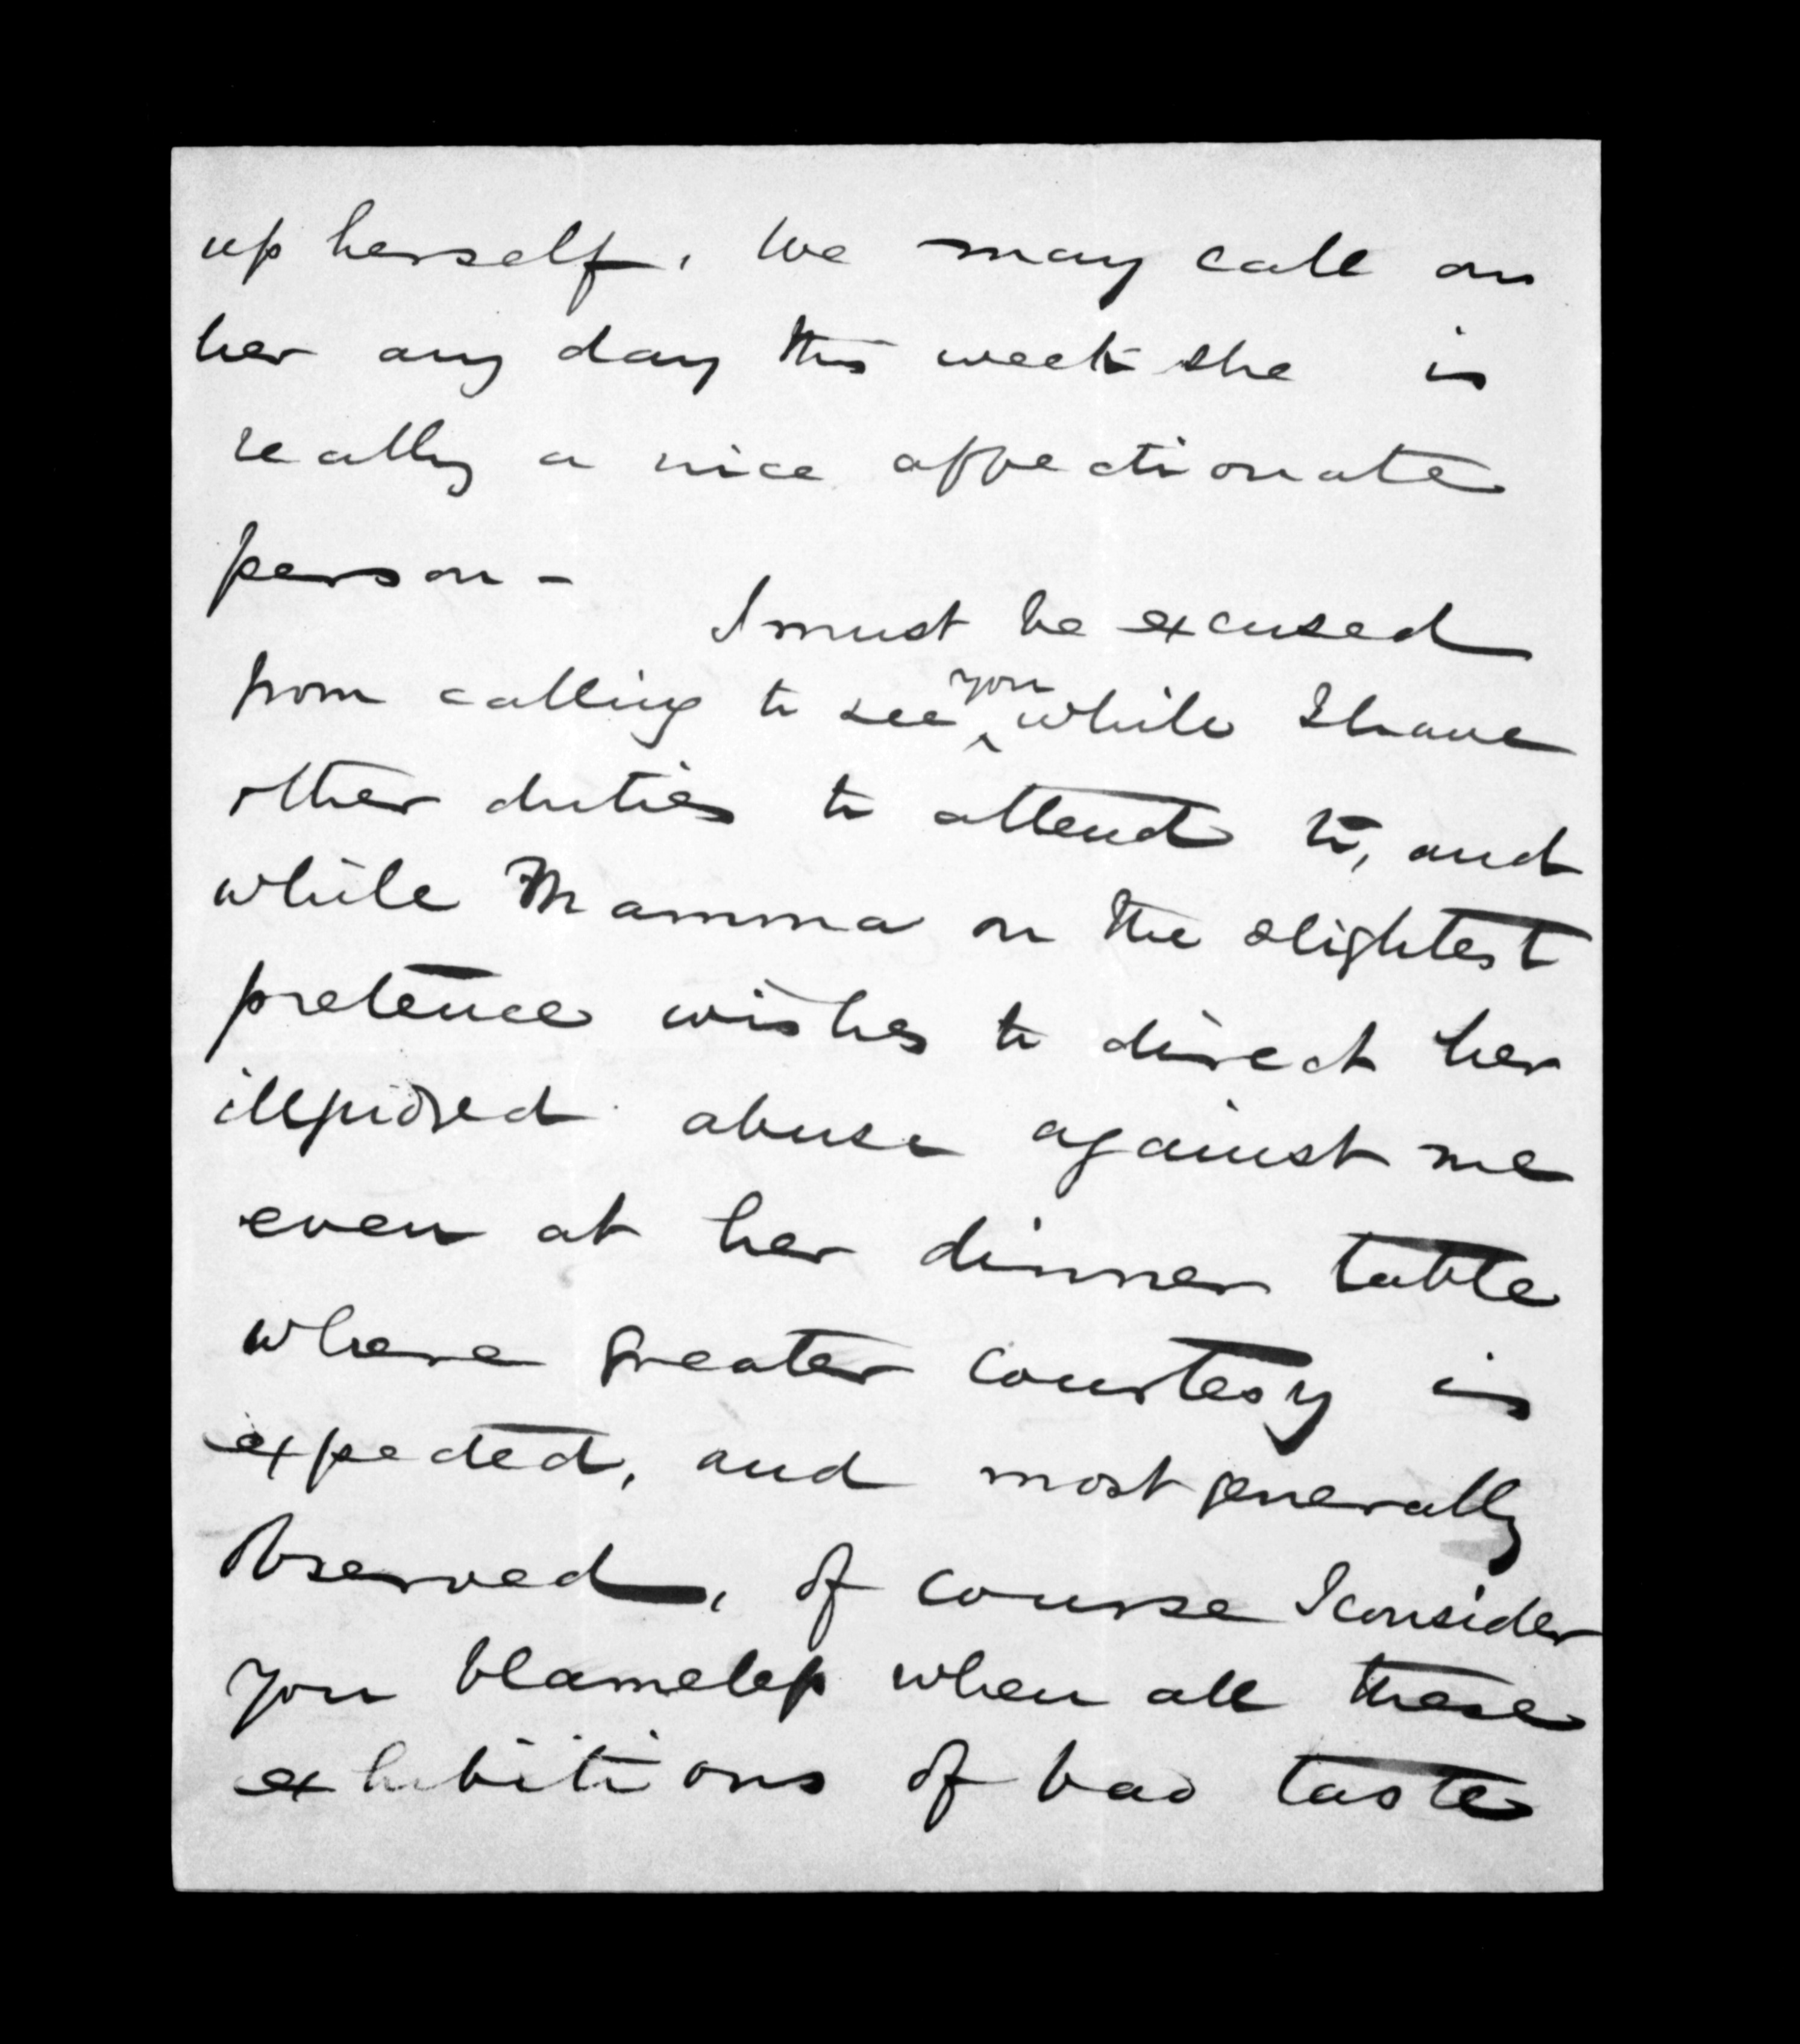 up herself, We may call on
her any day this week she is
really a nice affectionate
person -
I must be excused
from calling to see you while I have
other duties to attend to, and
while Mamma on the slightest
pretence wishes to direct her
abuse against me
even at her dinner table
where greater courtesy is
expected, and most generally
Observed, of course I consider
you blameless when all these
exhibitions of bad taste